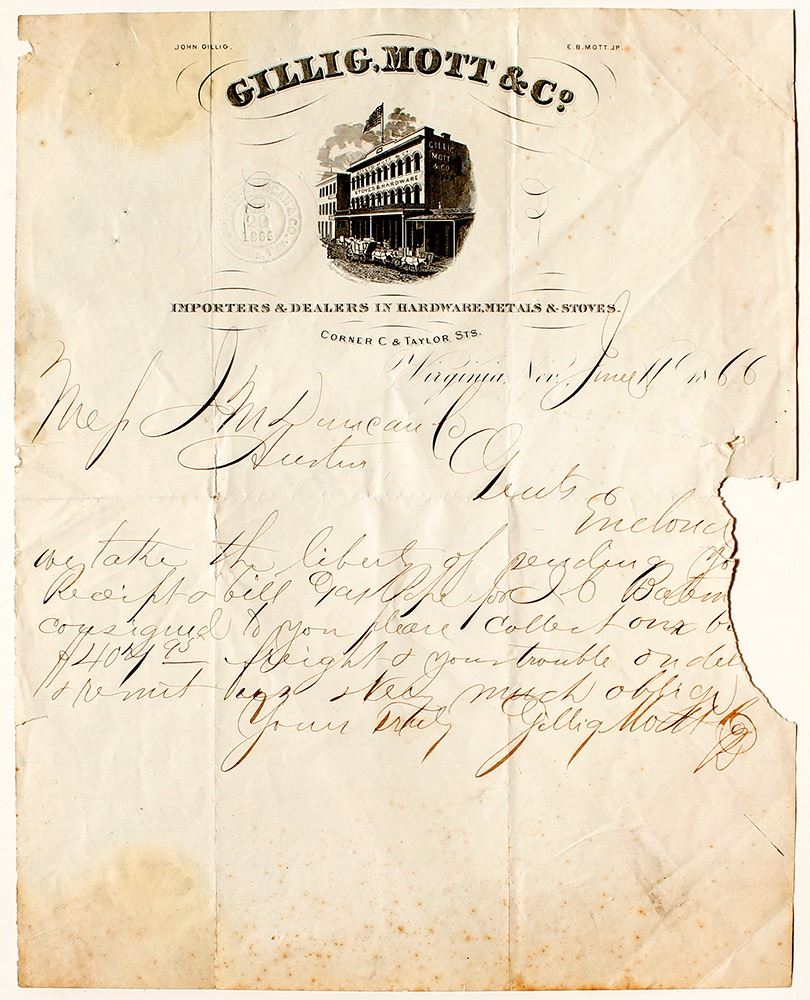 JOHN GILLIG.
E.B. MOTT. JR.
GILLIG, MOTT & Co.
GILLIG
MOTT
& CO.
STOVES & HARDWARE
1866
IMPORTERS & DEALERS IN HARDWARE, METALS & STOVES.
CORNER C & TAYLOR STS.
Virginia, Nev. June 11th 1866
Mess J M Duncan Co
Austin
Gents
Enclosed
we take the liberty of sending yo
Receipt & bill Gas Pipe for
consigned to you please collect our b
freight & your trouble on del
& remit us & very much oblige
Yours Truly Gillig Mott & Co